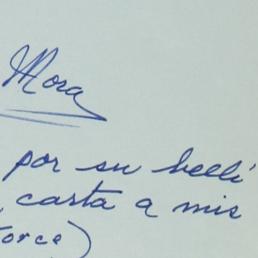 Mora
por su bellí
carta a mis
torce)